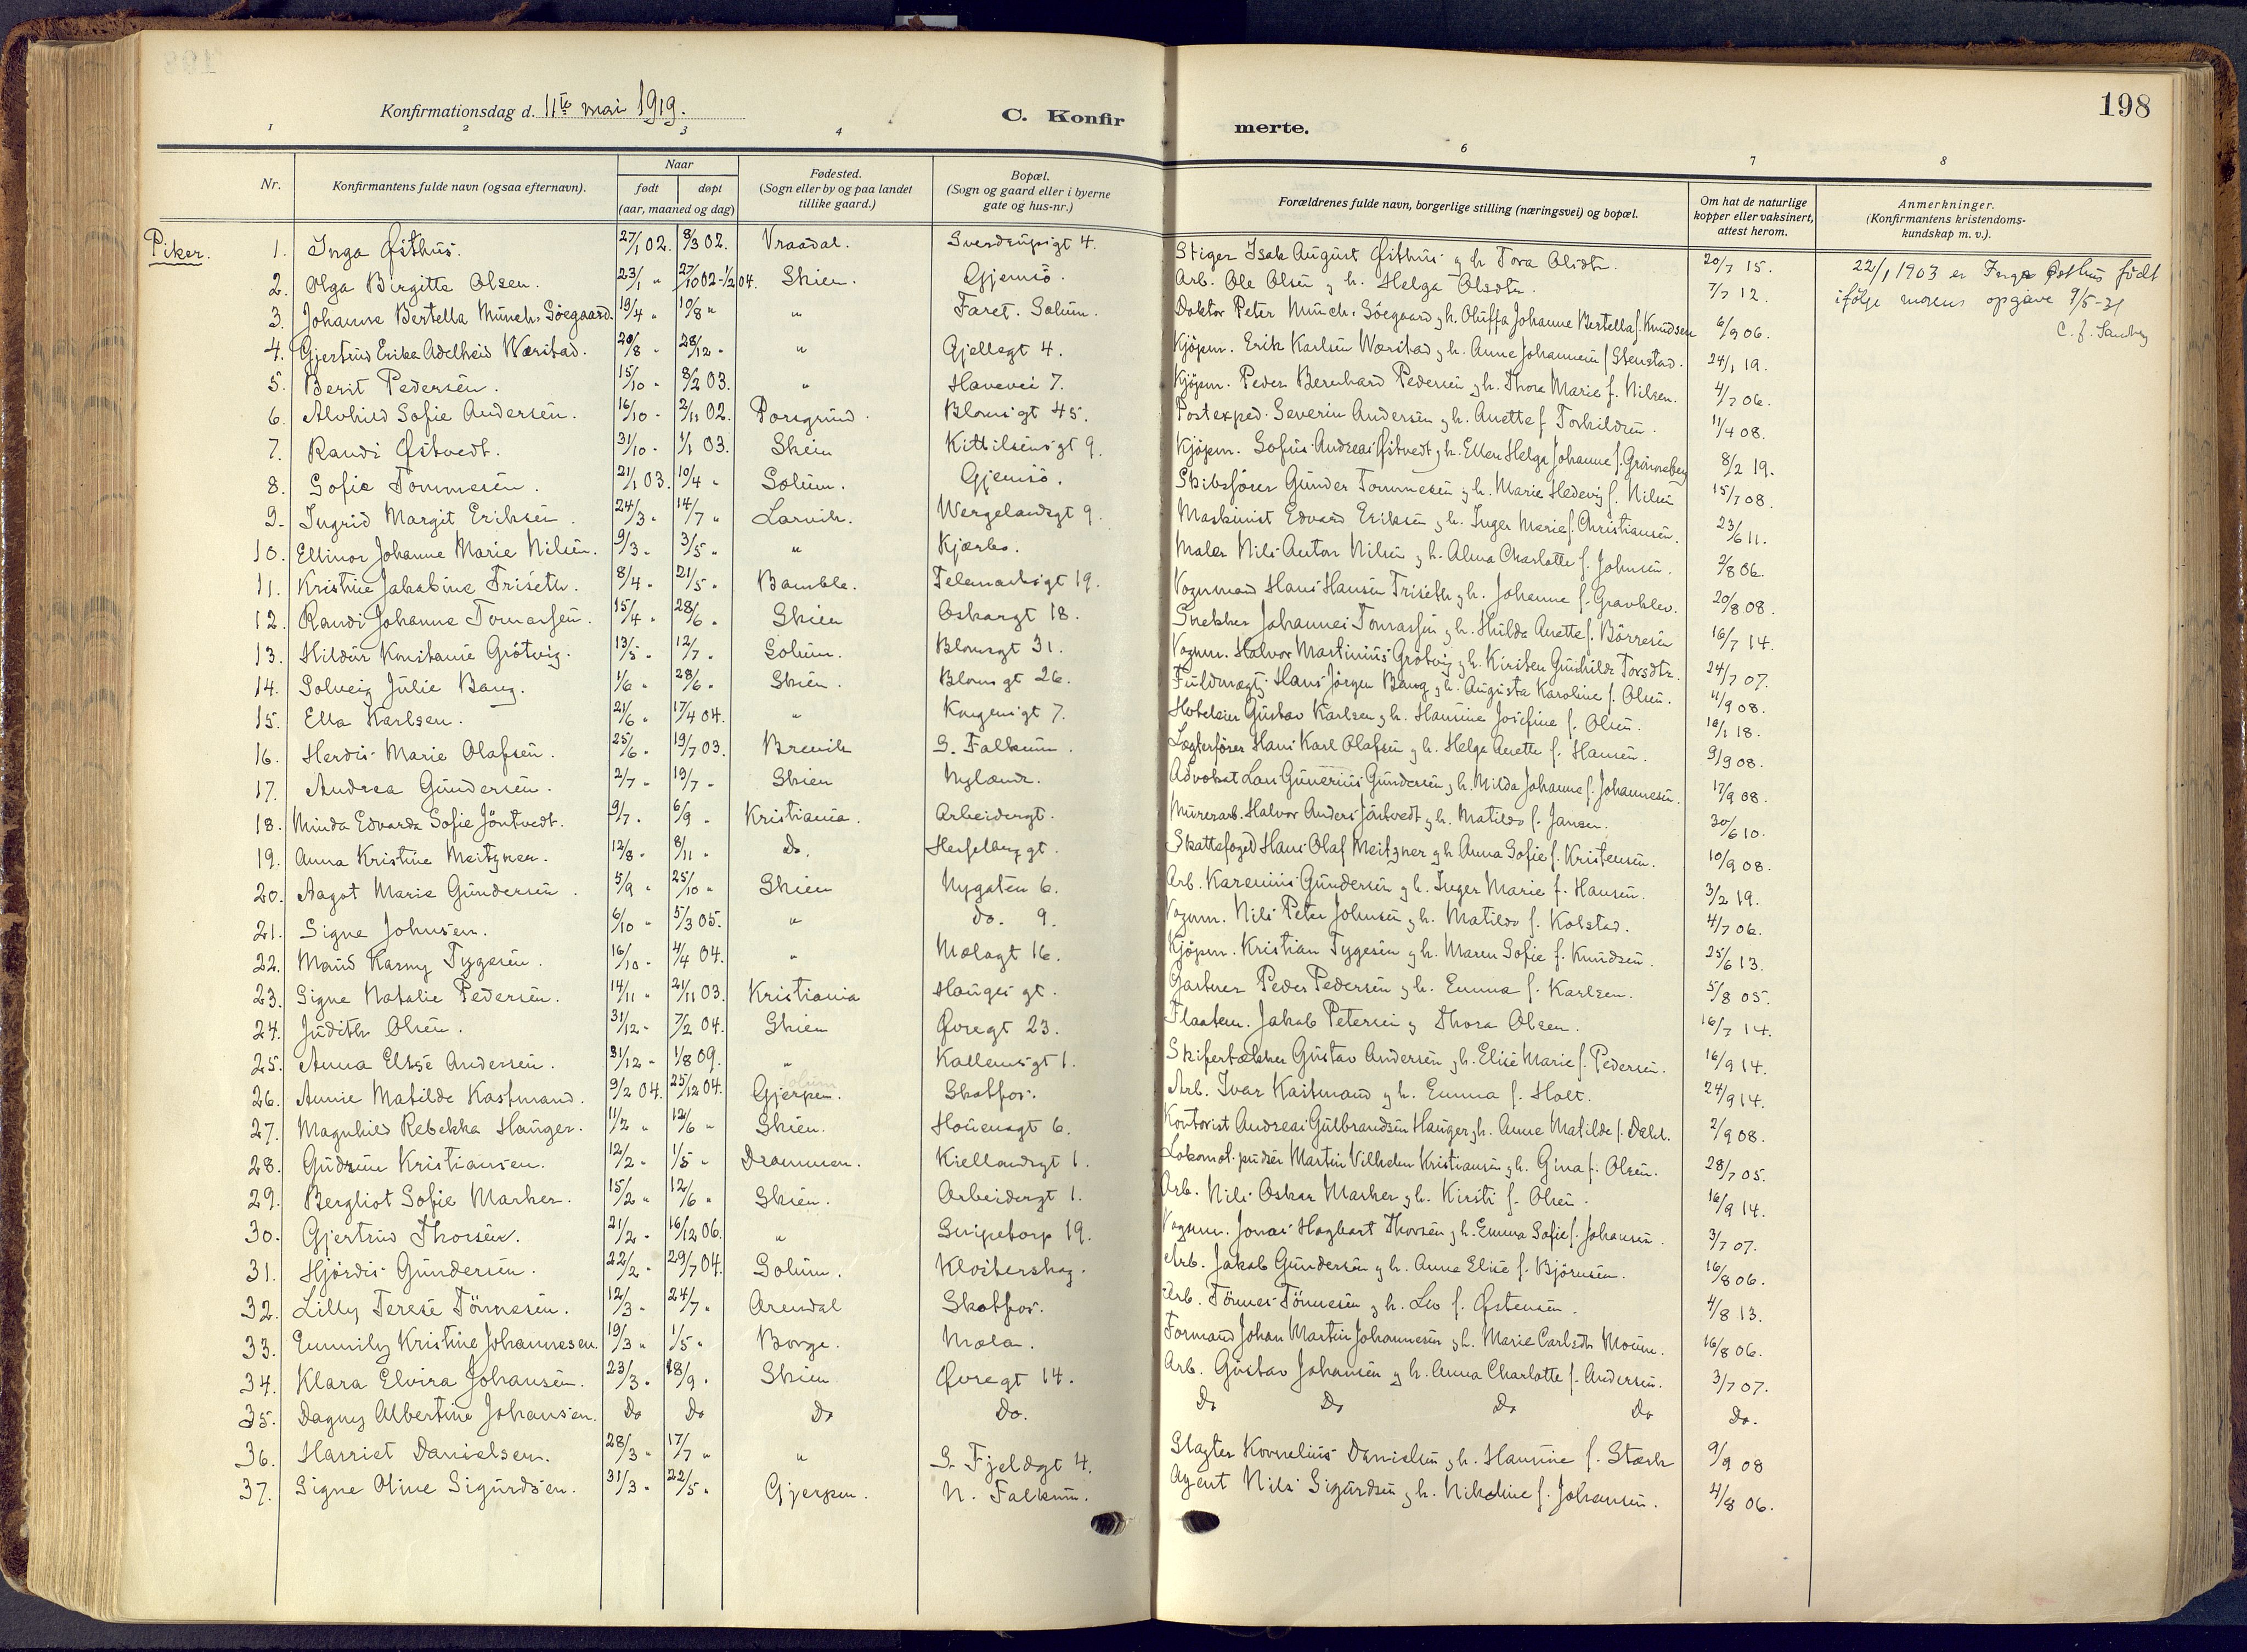 198
Konfirmationsdag d. 11te mai 1919.
C. Konfir
merte.
1 2 3 4 6 7 8
Nr.
Konfirmantens fulde navn (ogsaa efternavn).
Naar
født døpt
(aar, maaned og dag)
Fødested.
(Sogn eller by og paa landet
tillike gaard.)
Bopæl.
(Sogn og gaard eller i byerne
gate og hus-nr.)
Forældrenes fulde navn, borgerlige stilling (næringsvei) og bopæl.
Om hat de naturlige
kopper eller vaksinert,
attest herom.
Anmerkninger.
(Konfirmantens kristendoms-
kundskap m. v.).
Piker.
1. Inga Østhus. 27/1 02. 8/3 02. Vraadal. Sverdrupsgt 4. Stiger Isak August Østhus g h Tora Olsdtr. 20/7 15. 22/1 1903 er Inga Østhus født
ifølge morens opgave 9/5-31
2. Olga Birgitte Olsen. 23/1 " 27/10 02-1/2 04. Skien. Gjemsö. Arb. Ole Olsen g h. Helga Olsdtr. 7/7 12.
3. Johanne Bertella Münch-Söegaard. 19/4 " 10/8 " " Faret. Solum. Doktor Peter Münch-Söegaard g h. Oluffa Johanne Bertella f. Knudsen 6/9 06.
4. Gjertrud Erika Adelheid Wærstad. 20/8 " 28/12 " " Gjellegt 4. Kjöpm. Erik Karlsen Wærstad g h. Anne Johannesen f Stenstad. 24/1 19.
5. Berit Pedersen. 15/10 " 8/2 03. " Havevei 7. Kjöpm. Peder Bernhard Pedersen g h. Thora Marie f. Nilsen. 4/7 06.
6. Alvhild Sofie Andersen. 16/10 " 2/11 02. Porsgrund. Blomsgt 45. Postexped. Severin Andersen g h. Anette f. Torkildsen. 11/4 08.
7. Randi Østvedt. 31/10 " 1/1 03. Skien Kittilsensgt 9. Kjöpm. Sofus Andreas Østvedt g h. Ellen Helga Johanne f. Grönneberg 8/2 19.
8. Sofie Tommesen. 21/1 03. 10/4 " Solum. Gjemsö. Skibsförer Gunder Tommesen g h. Marie Hedevig f. Nilsen 15/7 08.
9. Ingrid Margit Eriksen. 24/3 " 14/7 " Larvik. Wergelandsgt 9. Maskinist Edvard Eriksen g h. Inger Marie f. Christiansen. 23/6 11.
10. Ellinor Johanne Marie Nilsen. 9/3 " 3/5 " " Kjærbo. Maler Nils Anton Nilsen g h. Alma Charlotte f. Johnsen. 2/8 06.
11. Kristine Jakobine Triseth. 8/4 " 21/5 " Bamble. Telemarksgt 19. Vognmand Hans Hansen Triseth g h. Johanne f. Gravklev. 20/8 08.
12. Randi Johanne Tomassen. 15/4 " 28/6 " Skien Oskarsgt 18. Snekker Johannes Tomassen g h. Hilda Anette f. Börresen 16/7 14.
13. Hildur Konstanse Grötvig. 13/5 " 12/7 " Solum. Blomsgt 31. Vognm. Halvor Martinius Grötvig g h. Kirsten Gunhilde Torsdtr. 24/7 07.
14. Solveig Julie Bang. 1/6 " 28/6 " Skien. Blomsgt 26. Fuldmægt. Hans Jörgen Bang g h. Augusta Karoline f. Olsen. 11/9 08.
15. Ella Karlsen. 21/6 " 17/4 04. " Kongensgt 7. Hoteleier Gustav Karlsen g h. Hansine Josefine f. Olsen. 16/1 18.
16. Herdis Marie Olafsen. 25/6 " 19/7 03. Brevik S. Falkum. Lægterförer Hans Karl Olafsen g h. Helga Anette f. Hansen. 9/9 08.
17. Andrea Gundersen. 2/7 " 19/7 " Skien Nylænde. Advokat Lars Gunerius Gundersen g h. Milda Johanne f. Johannesen. 17/9 08.
18. Minda Edvarda Sofie Jöntvedt. 9/7 " 6/9 " Kristiania. Arbeidergt. Murerarb. Halvor Anders Jöntvedt g h. Matilde f. Jansen. 30/6 10.
19. Anna Kristine Meitzner. 12/8 " 8/11 " Do. Hesselberg gt. Skattefoged Hans Olaf Meitzner g h Anna Sofie f. Kristensen. 10/9 08.
20. Aagot Marie Gundersen. 5/9 " 25/10 " Skien Nygaten 6. Arb. Karenius Gundersen g h. Inger Marie f. Hansen. 3/2 19.
21. Signe Johnsen. 6/10 " 5/3 05. " do. 9. Vognm. Nils Peter Johnsen g h. Matilde f. Kolstad. 4/7 06.
22. Maud Karny Tygesen. 16/10 " 4/4 04. " Mælagt 16. Kjöpm. Kristian Tygesen g h. Maren Sofie f. Knudsen. 25/6 13.
23. Signe Natalie Pedersen. 14/11 " 21/11 03. Kristiania Hauges gt. Gartner Peder Pedersen g h. Emma f. Karlsen. 5/8 05.
24. Judith Olsen. 31/12 " 7/2 04. Skien Øvregt 23. Flaatem. Jakob Petersen g Thora Olsen. 16/7 14.
25. Anna Elise Andersen. 31/12 " 1/8 09. " Kallemsgt 1. Skifertækker Gustav Andersen g h. Elise Marie f. Pedersen. 16/9 14.
26. Annie Matilde Kastmand. 9/2 04. 25/12 04. Gjerpen. Skotfos. Arb. Ivar Kastmand g h. Emma f. Holt. 24/9 14.
27. Magnhild Rebekka Hauger. 11/2 " 12/6 " Skien. Houensgt 6. Kontorist Andreas Gulbrandsen Hauger g h. Anne Matilde f. Dahl. 2/9 08.
28. Gudrun Kristiansen. 12/2 " 1/5 " Drammen. Kiellandsgt 1. Lokomot.pudser Martin Vilhelm Kristiansen g h. Gina f. Olsen. 28/7 05.
29. Bergliot Sofie Marker. 15/2 " 12/6 " Skien. Arbeidergt 1. Arb. Nils Oskar Marker g h. Kirsti f. Olsen. 16/9 14.
30. Gjertrud Thorsen. 21/2 " 16/12 06. " Snipetorp 19. Vognm. Jonas Hagbart Thorsen g h. Emma Sofie f. Johansen. 3/7 07.
31. Hjördis Gundersen. 22/2 " 29/7 04. Solum. Klosterskog. Arb. Jakob Gundersen g h. Anna Elise f. Björnsen. 16/8 06.
32. Lilly Terese Tönnesen. 12/3 " 24/7 " Arendal Skotfos. Arb. Tönnes Tönnesen g h. Lea f. Østensen. 4/8 13.
33. Emmily Kristine Johannesen. 19/3 " 1/5 " Borge. Mæla. Formand Johan Martin Johannesen g h. Marie Carlsdtr Moum. 16/8 06.
34. Klara Elvira Johansen. 23/3 " 18/9 " Skien. Øvregt 14. Arb. Gustav Johansen g h. Anna Charlotte f. Andersen. 3/7 07.
35. Dagny Albertine Johansen. Do Do Do Do. Do Do Do Do Do.
36. Harriet Danielsen. 28/3 " 17/7 " " S. Fjeldgt 4. Slagter Kornelius Danielsen g h. Hansine f. Stærk 9/9 08
37. Signe Oline Sigurdsen. 31/3 " 22/5 " Gjerpen. N. Falkum. Agent Nils Sigurdsen g h. Nikoline f. Johansen. 4/8 06.